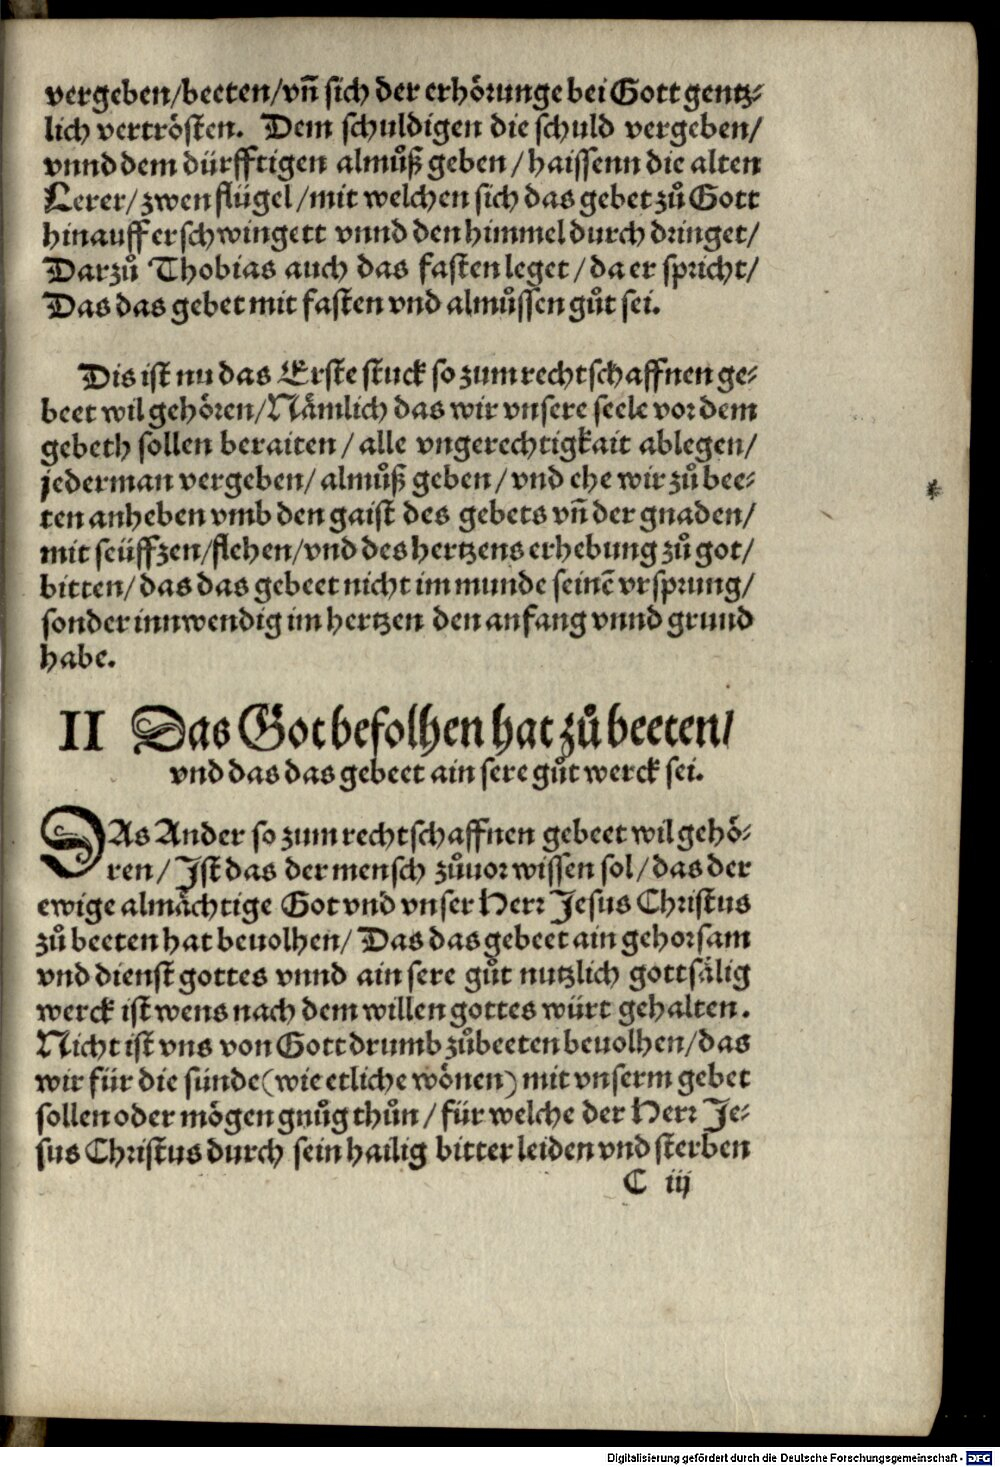 vergeben/beeten/vñ sich der erhörunge bei Gott gentz⸗
lich vertrösten. Dem schuldigen die schuld vergeben/
vnnd dem dürfftigen almůß geben/haissenn die alten
Lerer/zwen flügel/mit welchen sich das gebet zů Gott
hinauff erschwingett vnnd den himmel durch dringet/
Darzů Thobias auch das fasten leget/da er spricht/
Das das gebet mit fasten vnd almůssen gůt sei.
Dis ist nu das Erste stuck so zum rechtschaffnen ge⸗
beet wil gehören/Nämlich das wir vnsere seele vor dem
gebeth sollen beraiten/alle vngerechtigkait ablegen/
jederman vergeben/almůß geben/vnd ehe wir zů bee⸗
ten anheben vmb den gaist des gebets vñ der gnaden/
mit seüffzen/flehen/vnd des hertzens erhebung zů got/
bitten/das das gebeet nicht im munde seinē vrsprung/
sonder innwendig im hertzen den anfang vnnd grund
habe.
II Das Got befolhen hat zů beeten/
vnd das das gebeet ain sere gůt werck sei.
DAs Ander so zum rechtschaffnen gebeet wil gehö⸗
ren/Ist das der mensch zůuor wissen sol/das der
ewige almächtige Got vnd vnser Herr Jesus Christus
zů beeten hat beuolhen/Das das gebeet ain gehorsam
vnd dienst gottes vnnd ain sere gůt nutzlich gottsälig
werck ist wens nach dem willen gottes würt gehalten.
Nicht ist vns von Gott drumb zůbeeten beuolhen/das
wir für die sünde (wie etliche wönen) mit vnserm gebet
sollen oder mögen gnůg thůn/für welche der Herr Je⸗
sus Christus durch sein hailig bitter leiden vnd sterben
C iij
Digitalisierung gefördert durch die Deutsche Forschungsgemeinschaft - DFG